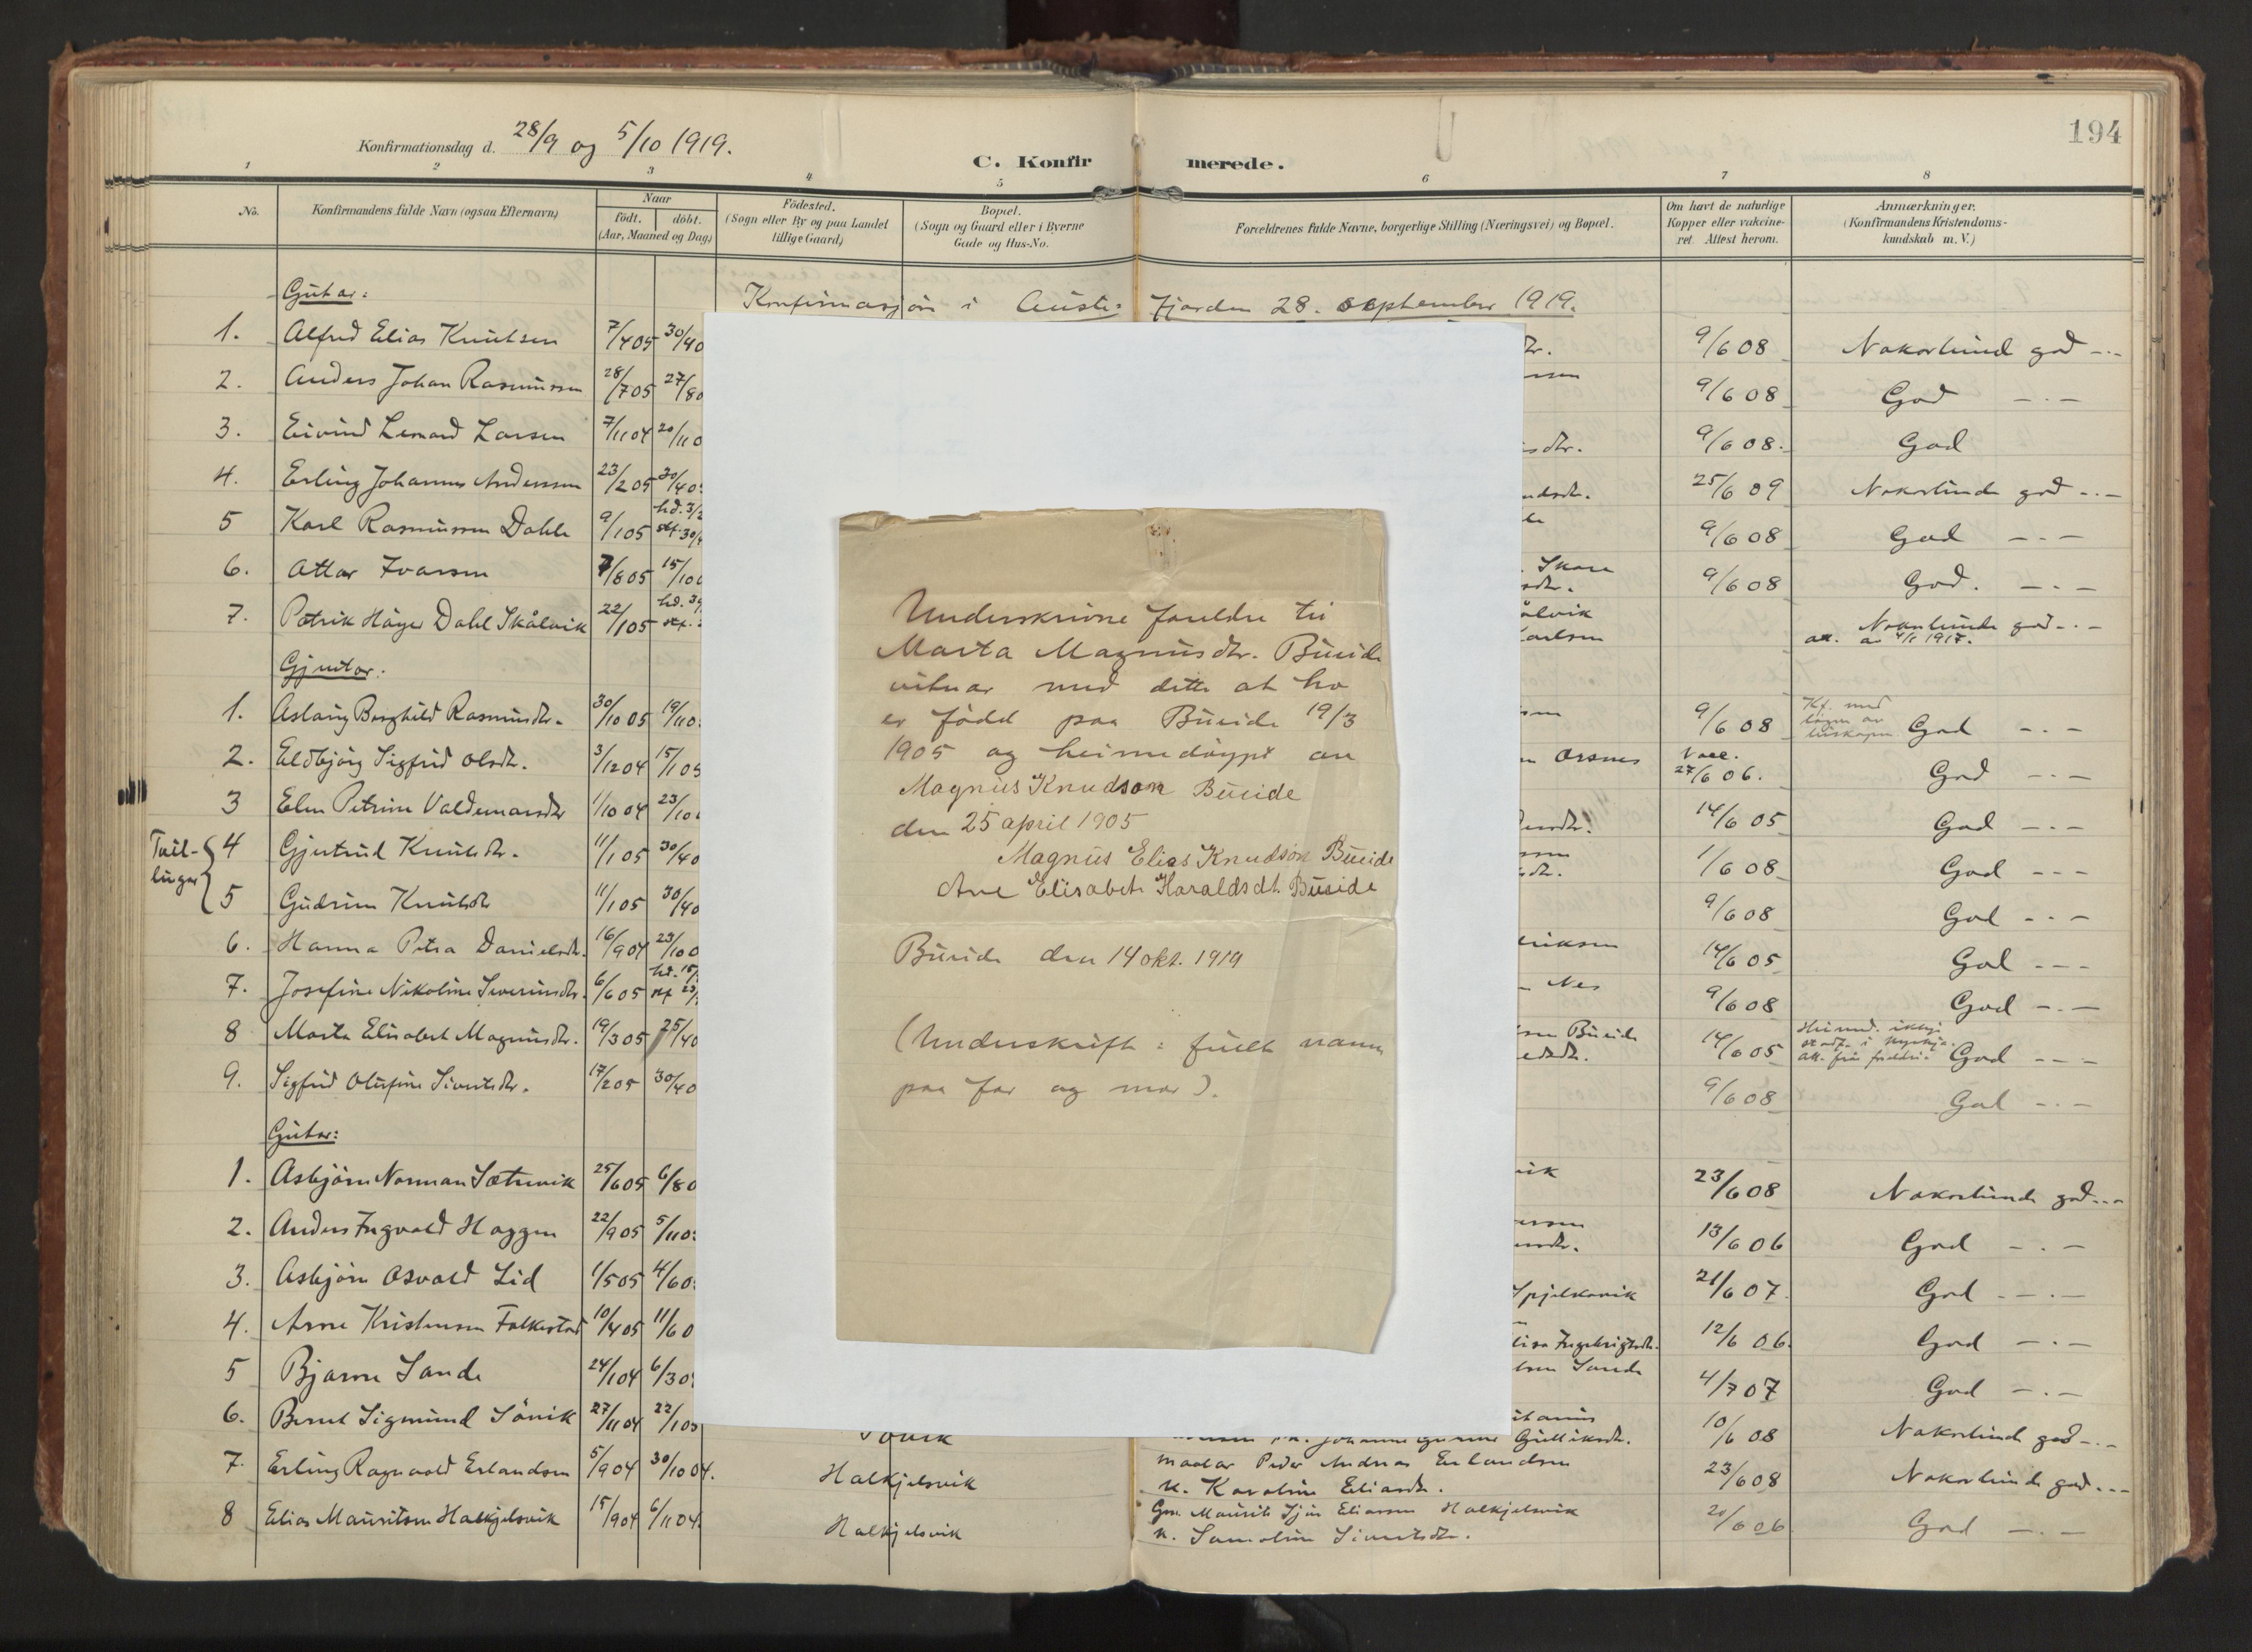 194
Konfirmationsdag d. 28/9 og 5/10 1919.
C. Konfirmerede.
1 2 3 4 5 6 7 8
No.
Konfirmandens fulde Navn (ogsaa Efternavn)
Naar
födt. döbt.
(Aar, Maaned og Dag)
Födested.
(Sogn eller By og paa Landet
tillige Gaard)
Bopæl.
(Sogn og Gaard eller i Byerne
Gade og Hus-No.
Forældrenes fulde Navne, borgerlige Stilling (Næringsvei) og Bopæl.
Om havt de naturlige
Kopper eller vakcine-
ret. Attest herom.
Anmærkninger.
(Konfirmandens Kristendoms-
kundskab m. V.)
Gutar:
Konfirmasjon i Austefjorden 28. september 1919.
1. Alfred Elias Knutsen 7/4 05 30/4 0 dtr. 9/6 08 Nokorlund god -.-
2. Anders Johan Rasmussen 28/7 05 27/8 0 9/6 08 God -.-
3. Eivind Lenard Larsen 7/11 04 20/11 0 dtr. 9/6 08. God
4. Erling Johannes Andersen 23/2 05 30/4 0 ndsdtr. 25/6 09 Nokorlunde god -.-
5 Karl Rasmussen Dahle 9/1 05 hd. 3/2 stf. 30/4 le 9/6 08 God -.-
6. Ottar Ivarsen 7/8 05 15/10 Skare dtr. 9/6 08 God. -.-
7. Patrik Håger Dahl Skålvik 22/1 05 hd. stf. ålvik Karlsen Nokorlunde god -.-
att. av 4/1 1917.
Gjentor:
1. Aslaug Borghild Rasmusdtr. 30/10 05 19/11 0 9/6 08 Kf. med
löyve av
biskopen God -.-
2. Eldbjörg Sigfrid Olsdtr. 3/12 04 15/1 05 Orsnes Vacc.
27/6 06. God -.-
3 Elen Petrine Valdemarsdtr 1/10 04 23/10 14/6 05 God -.-
Tvil-
lingar
4 Gjertrud Knutsdtr. 11/1 05 30/4 0 dtr. 1/6 08 God ---
5 Gudrun Knutsdtr 11/1 05 30/4 0 9/6 08 God -.-
6. Hanna Petra Danielsdtr. 16/9 04 23/10 0 riksen 14/6 05 God ---
7. Josefine Nikoline Severinsdtr. 6/6 05 hd. 15/ stf 23/ Nes 9/6 08 God -.-
8 Marta Elisabet Magnusdtr. 19/3 05 25/4 0 Bueide dtr. 14/6 05 Heimd. ikkje
stadf. i kyrkja.
att. frå foreldri. God ---
9. Sigfrid Olufine Sivertsdtr. 17/2 05 30/4 0 9/6 08 God -.-
Gutar:
1. Asbjörn Norman Sætrevik 25/6 05 6/8 0 vik 23/6 08 Nokorlunde god -.-
2. Anders Ingvald Haggen 22/9 05 5/11 0 ersen dtr. 13/6 06 God -.-
3. Asbjörn Osvald Lid 1/5 05 4/6 0 Spjelkavik 21/6 07 God -.-
4. Arne Kristensen Folkestad 10/4 05 11/6 0 lisa Ingebrigtsdtr. 12/6 06. God -.-
5 Bjarne Sande 24/1 04 6/3 0 lsen Sande 4/7 07 God -.-
6. Bernt Sigmund Sövik 27/11 04 22/1 05 Sövik Johanne Gulliksdtr. 10/6 08 Nokorlunde god -.-
7. Erling Ragnvald Erlandsen 5/9 04 30/10 04. Halkjelsvik maalar Peder Andreas Erlandsen
k. Karoline Eliasdtr. 23/6 08 Nokorlunde god -.-
8 Elias Mauritsen Halkjelsvik 15/9 04 6/11 04. Halkjelsvik Gm. Maurits Sjur Eliassen Halkjelsvik
k. Samoline Sivertsdtr. 20/6 06 God -.-
Underskrivne foreldre til
Marta Magnusdtr. Bueide
vitnar med dette at ho
er född paa Bueide 19/3
1905 og heimedöypt av
Magnus Knudson Bueide
den 25 april 1905
Magnus Elias Knudson Bueide
Ane Elisabet Haraldsdt. Bueide
Bueide den 14 okt. 1919
(Underskrift : fullt namn
paa far og mor).